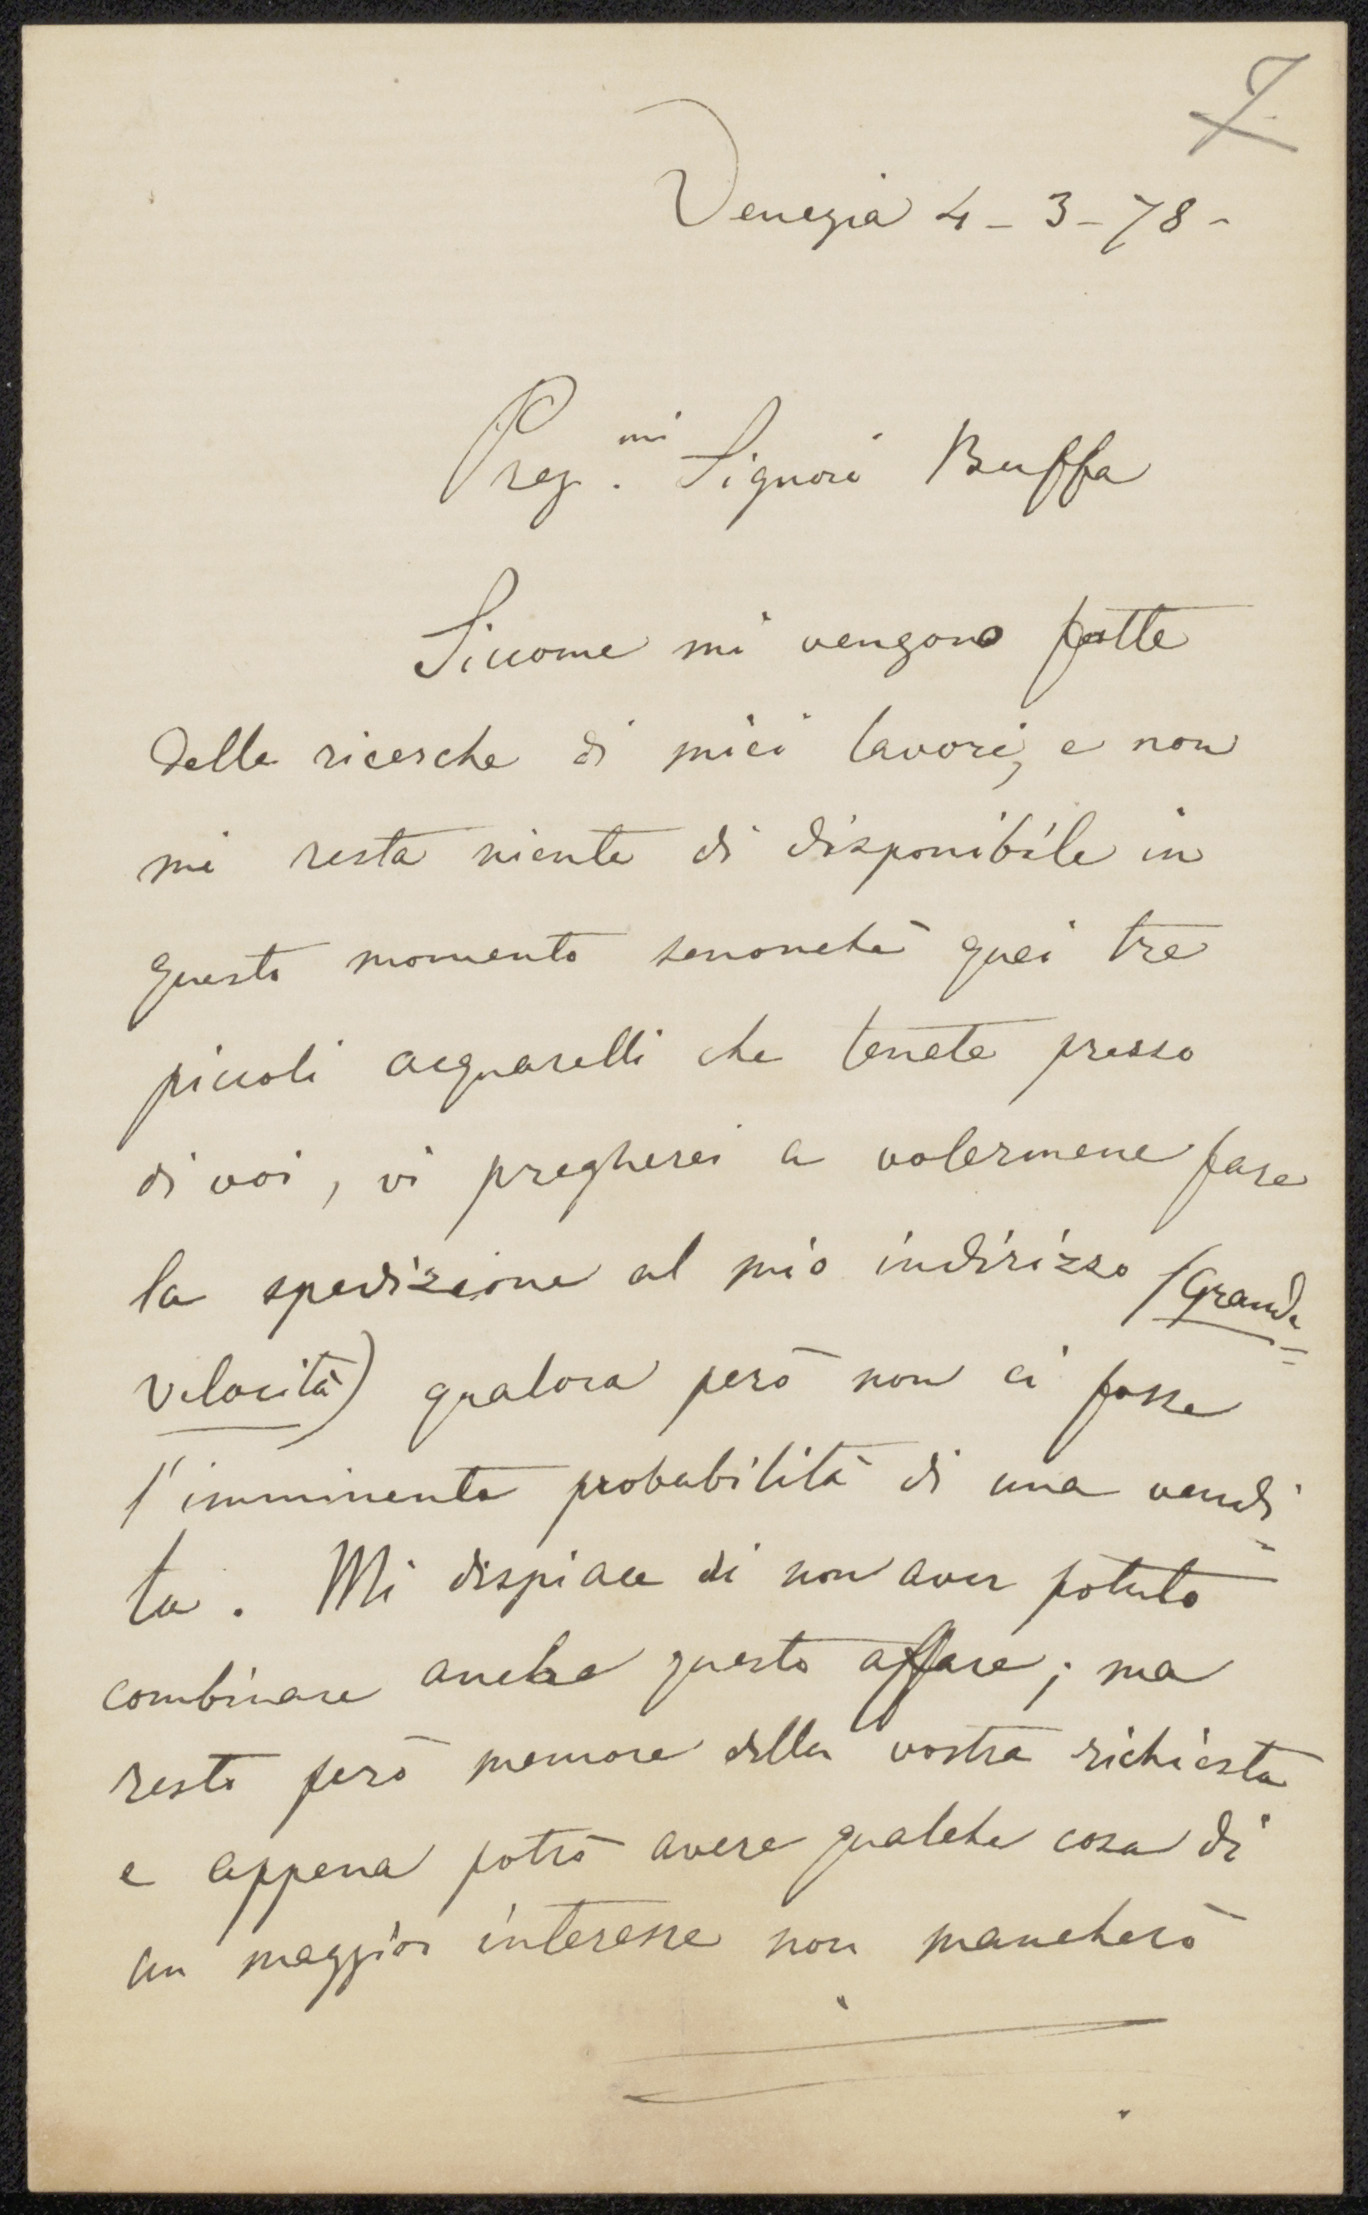 7
Venezia 4 - 3 - 78 -
Preg.mi Signori Buffa
Siccome mi vengono fatte
delle ricerche di miei lavori, e non
mi resta niente di disponibile in
questo momento senonchè quei tre
piccoli acquarelli che tenete presso
di voi, vi pregherei a volermene fare
la spedizione al mio indirizzo (Grande
velocità) qualora però non ci fosse
l'imminente probabilità di una vendi=
ta. Mi dispiace di non aver potuto
combinare anche questo affare; ma
resto però memore della vostra richiesta
e appena potrò avere qualche cosa di
un maggior interesse non mancherò